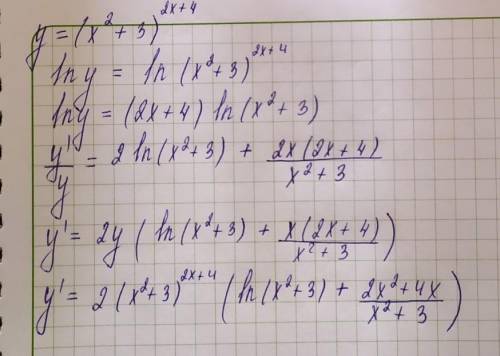 y = (x² + 3)^(2x+4)
ln y = ln (x² + 3)^(2x+4)
ln y = (2x + 4) ln (x² + 3)
y'/y = 2 ln (x² + 3) + 2x(2x + 4)/(x² + 3)
y' = 2y ( ln (x² + 3) + x(2x + 4)/(x² + 3) )
y' = 2 (x² + 3)^(2x+4) ( ln (x² + 3) + (2x² + 4x)/(x² + 3) )